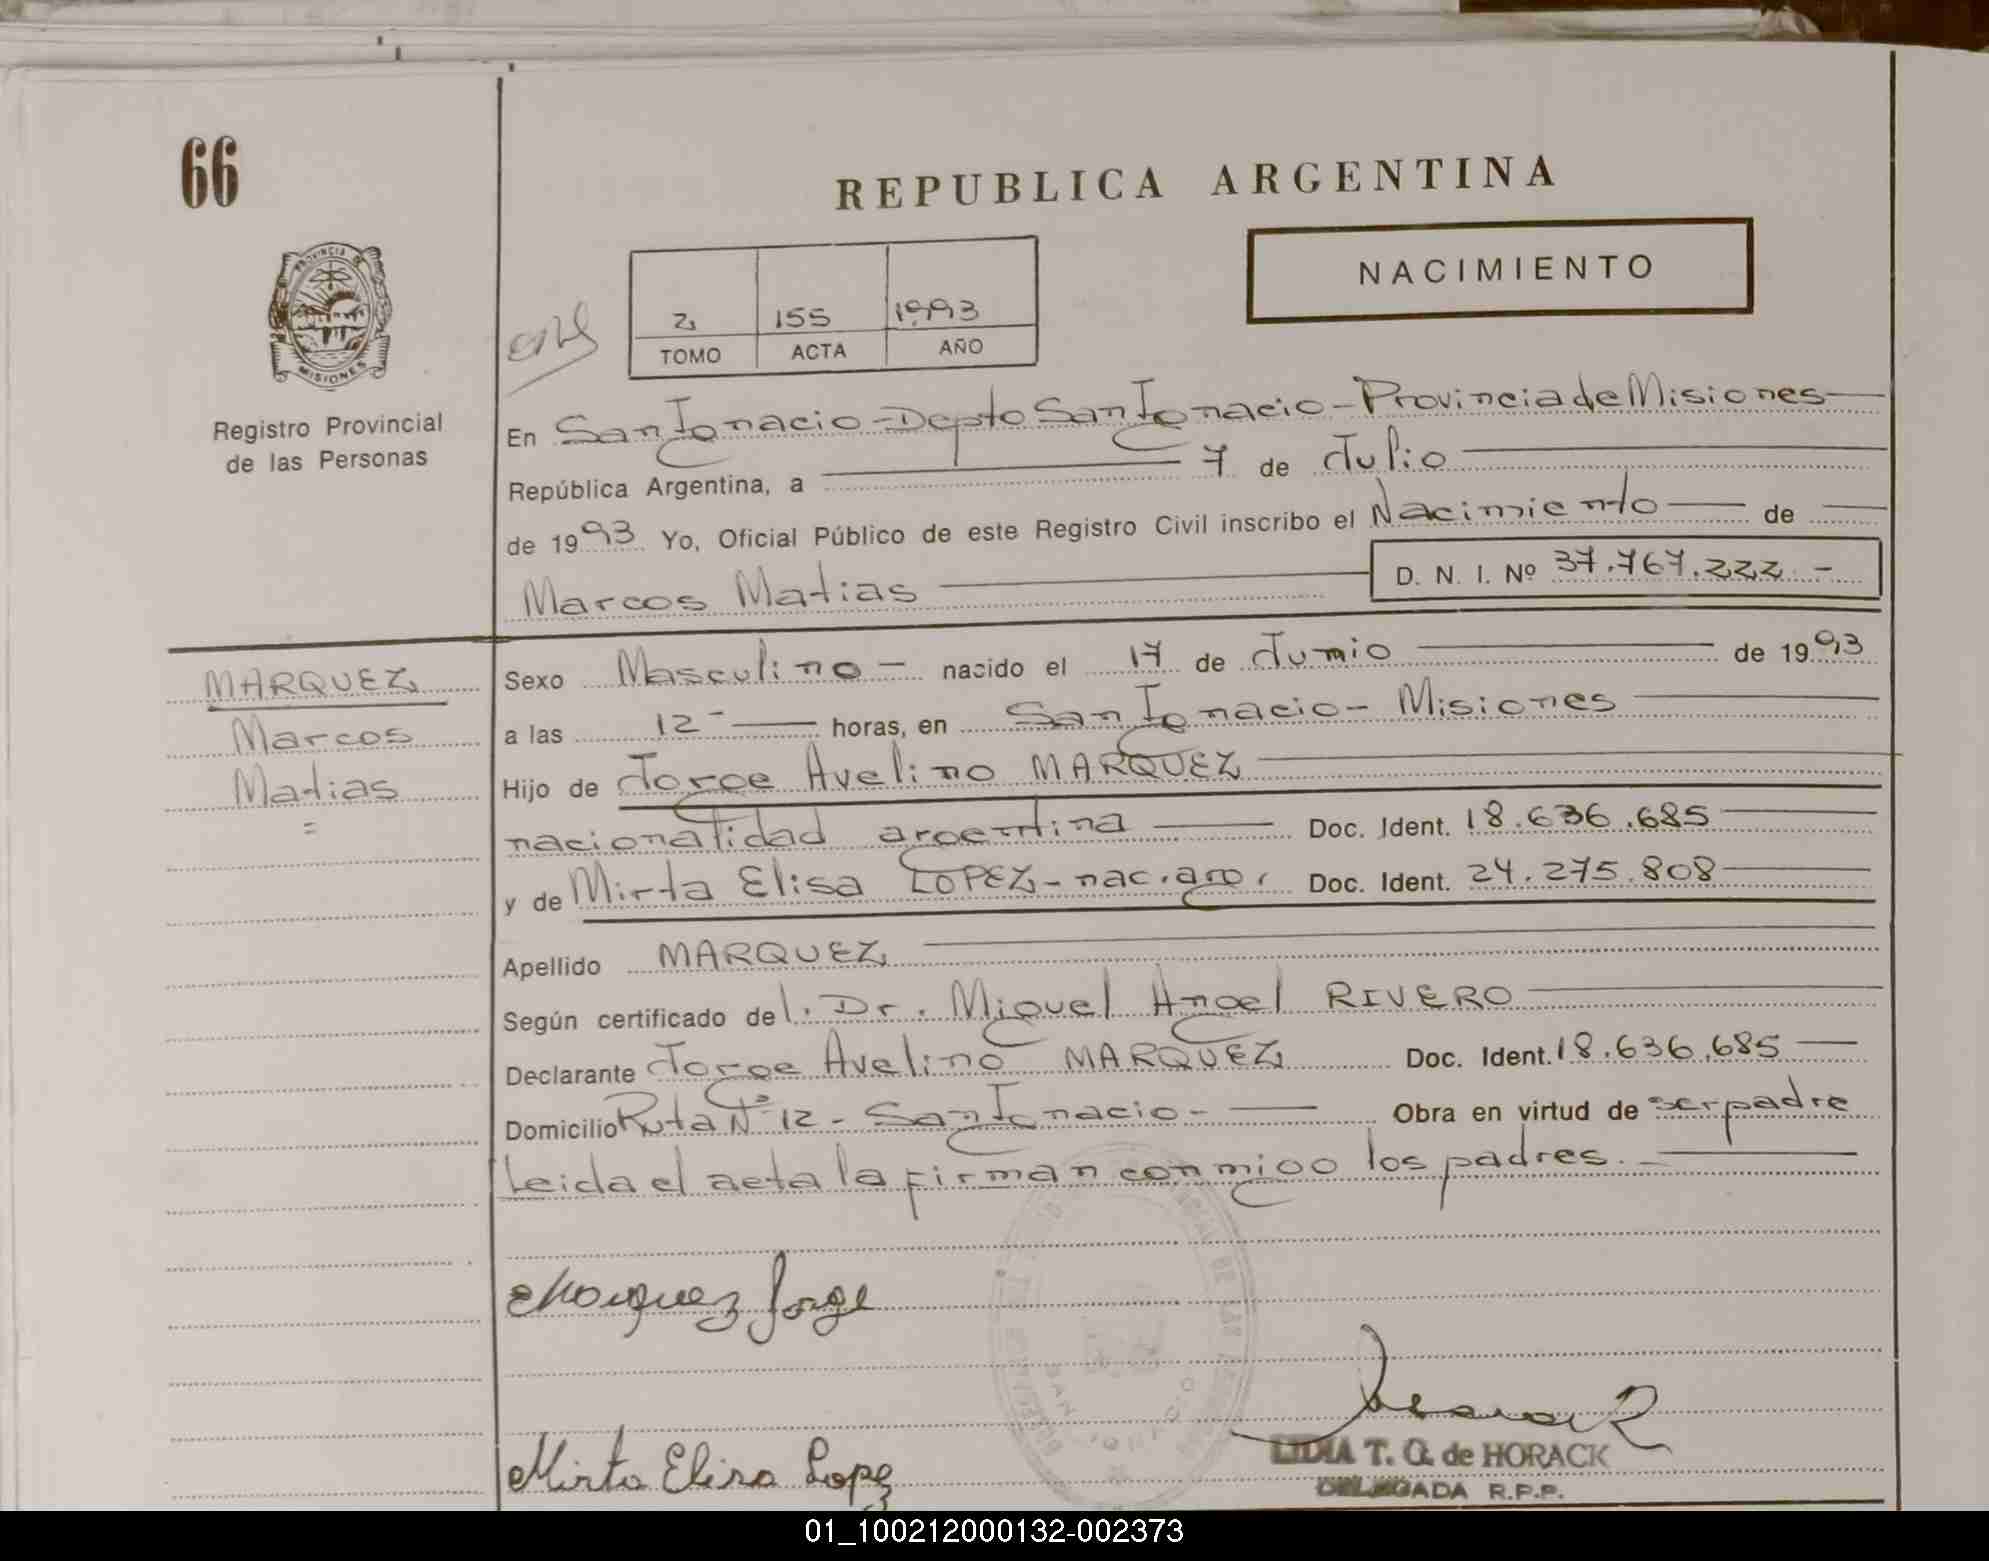 66
REPUBLICA ARGENTINA
NACIMIENTO
PROVINCIA DE
MISIONES
Registro Provincial
de las Personas
2 155 1993
TOMO ACTA AÑO
En San Ignacio - Depto San Ignacio - Provincia de Misiones
República Argentina, a 7 de Julio
de 1993 Yo, Oficial Público de este Registro Civil inscribo el Nacimiento de
Marcos Matias D. N. I. Nº 37.767.222 -
MARQUEZ
Marcos
Matias
=
Sexo Masculino - nacido el 17 de Junio de 1993
a las 12 - horas, en San Ignacio - Misiones
Hijo de Jorge Avelino MARQUEZ
nacionalidad argentina Doc. Ident. 18.636.685
y de Mirta Elisa LOPEZ - nac. arg. Doc. Ident. 24.275.808
Apellido MARQUEZ
Según certificado del. Dr. Miguel Angel RIVERO
Declarante Jorge Avelino MARQUEZ Doc. Ident. 18.636.685
Domicilio Ruta Nº 12 - San Ignacio - Obra en virtud de ser padre
Leida el acta la firman conmigo los padres. -
Marquez Jorge
Mirta Elisa Lopez
LIDIA T. Q. de HORACK
DELEGADA R.P.P.
01_100212000132-002373